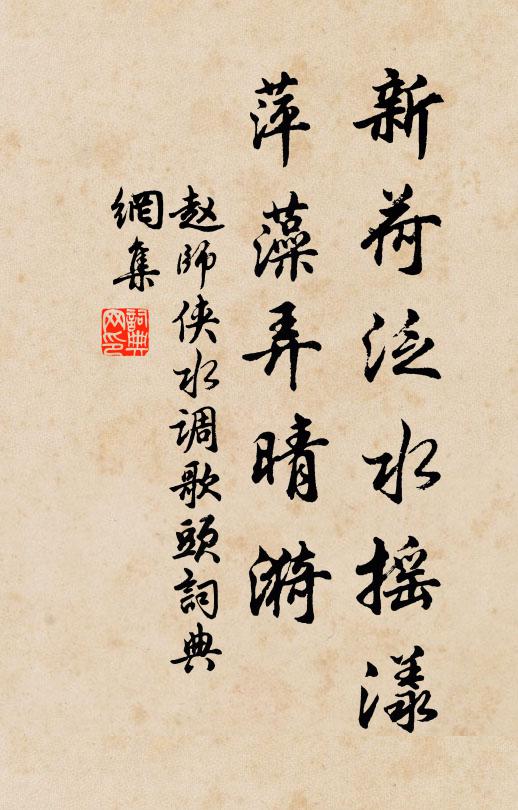 新荷泛水摇漾
萍藻弄晴漪
赵師侠水调歌頭詞典
網集
詞典
网印